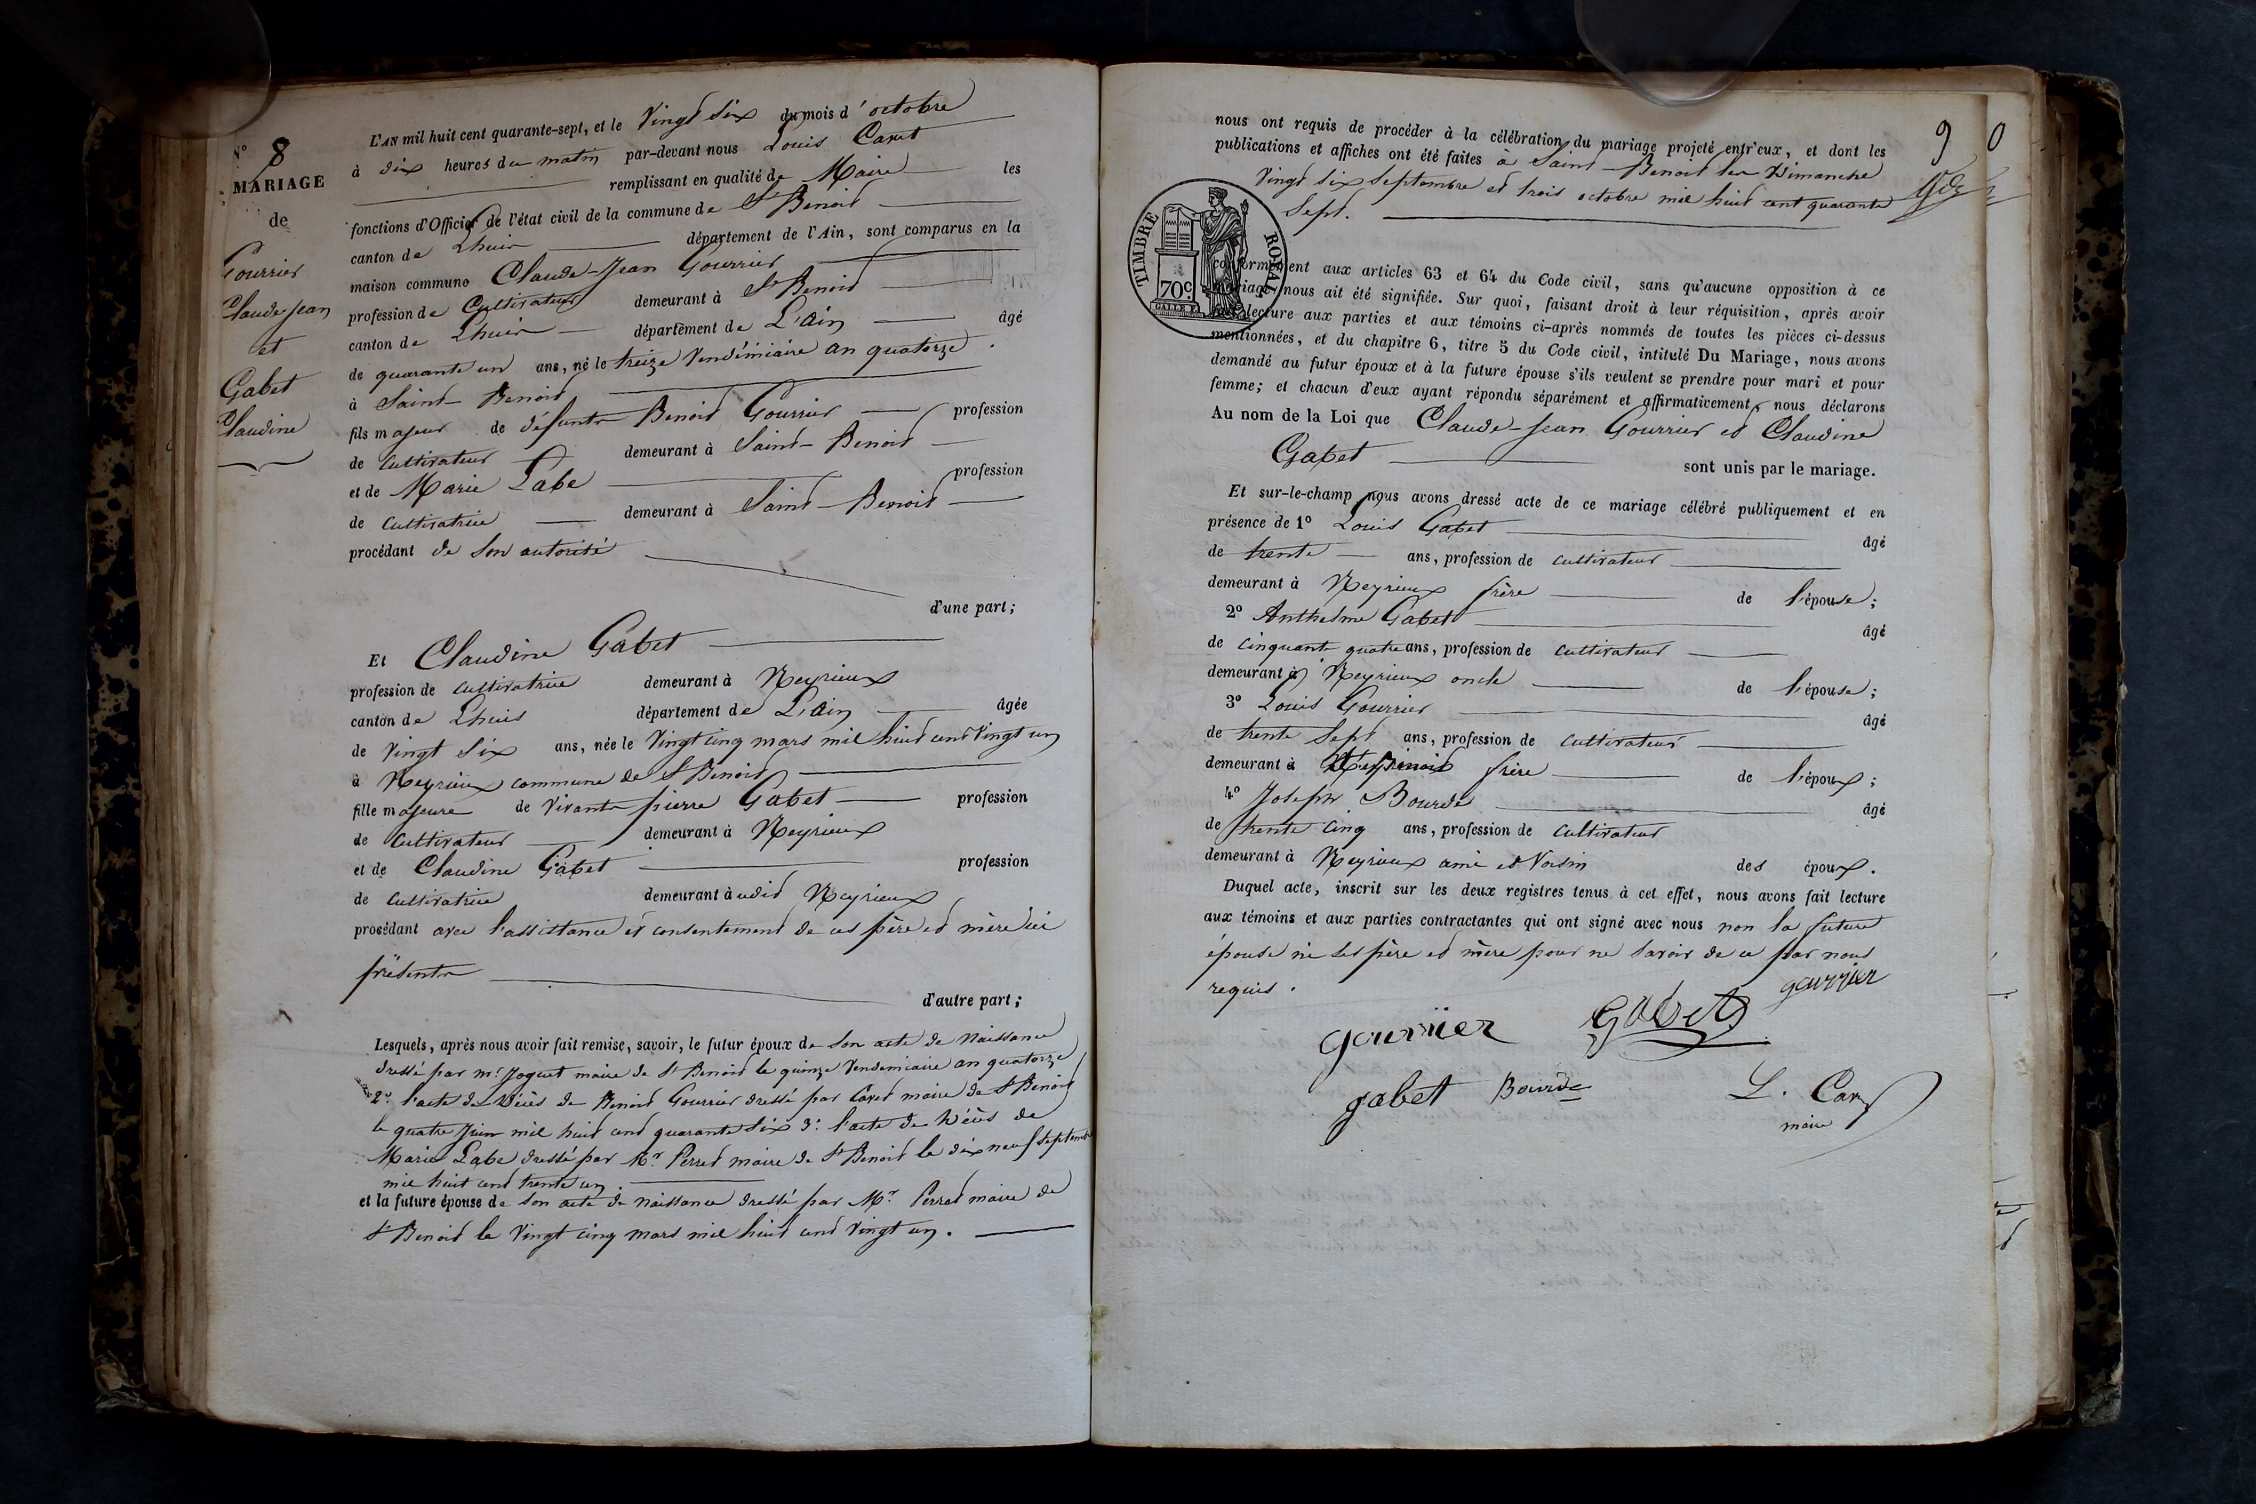 N° 8
MARIAGE
de
Gourrier
Claude Jean
et
Gabet
Claudine
L'AN mil huit cent quarante-sept, et le Vingt Six du mois d'octobre
à dix heures du matin par-devant nous Louis Caret
remplissant en qualité de Maire les
fonctions d'Officier de l'état civil de la commune de St Benoit
canton de Lhuis département de l'Ain, sont comparus en la
maison commune Claude-Jean Gourrier
profession de Cultivateur demeurant à St Benoit
canton de Lhuis département de L'Ain âgé
de quarante un ans, né le treize Vendémiaire an quatorze
à Saint-Benoit
fils majeur de défunts Benoit Gourrier profession
de cultivateur demeurant à Saint-Benoit
et de Marie Labe profession
de cultivatrice demeurant à Saint-Benoit
procédant de son autorité
d'une part;
Et Claudine Gabet
profession de cultivatrice demeurant à Neyrieux
canton de Lhuis département de L'Ain âgée
de vingt six ans, née le Vingt cinq mars mil huit cent vingt un
à Neyrieux commune de St Benoit
fille majeure de vivants pierre Gabet profession
de cultivateur demeurant à Neyrieux
et de Claudine Gabet profession
de cultivatrice demeurant à udit Neyrieux
procédant avec l'assistance et consentement de ces père et mère ici
présents
d'autre part;
Lesquels, après nous avoir fait remise, savoir, le futur époux de son acte de Naissance
dressé par mr Joguet maire de St Benoit le quinze Vendemiaire an quatorze
2° l'acte de Décès de Benoit Gourrier dressé par Caret maire de St Benoit
le quatre Juin mil huit cent quarante six 3° l'acte de Décès de
Marie Labe dressé par Mr Perret maire de St Benoit le dix neuf septembre
mil huit cent trente un.
et la future épouse de son acte de Naissance dressé par Mr Perret maire de
St Benoit le vingt cinq mars mil huit cent vingt un.
9
0
nous ont requis de procéder à la célébration du mariage projeté entr'eux, et dont les
publications et affiches ont été faites à Saint-Benoit les Dimanche
Vingt six Septembre et trois octobre mil huit cent quarante
Sept.
TIMBRE ROYAL
70c.
conformément aux articles 63 et 64 du Code civil, sans qu'aucune opposition à ce
mariage nous ait été signifiée. Sur quoi, faisant droit à leur réquisition, après avoir
lecture aux parties et aux témoins ci-après nommés de toutes les pièces ci-dessus
mentionnées, et du chapitre 6, titre 5 du Code civil, intitulé Du Mariage, nous avons
demandé au futur époux et à la future épouse s'ils veulent se prendre pour mari et pour
femme; et chacun d'eux ayant répondu séparément et affirmativement, nous déclarons
Au nom de la Loi que Claude-Jean Gourrier et Claudine
Gabet sont unis par le mariage.
Et sur-le-champ nous avons dressé acte de ce mariage célébré publiquement et en
présence de 1° Louis Gabet âgé
de trente ans, profession de cultivateur
demeurant à Neyrieux frère de l'épouse;
2° Anthelme Gabet âgé
de cinquante quatre ans, profession de cultivateur
demeurant à Neyrieux oncle de l'épouse;
3° Louis Gourrier âgé
de trente sept ans, profession de cultivateur
demeurant à St Benoit frère de l'époux;
4° Joseph Bourde âgé
de trente cinq ans, profession de cultivateur
demeurant à Neyrieux ami et Voisin des époux.
Duquel acte, inscrit sur les deux registres tenus à cet effet, nous avons fait lecture
aux témoins et aux parties contractantes qui ont signé avec nous non la future
épouse ni ses père et mère pour ne savoir de ce par nous
requis.
gourrier
gourrier Gabet
gabet Bourde L. Caret
maire